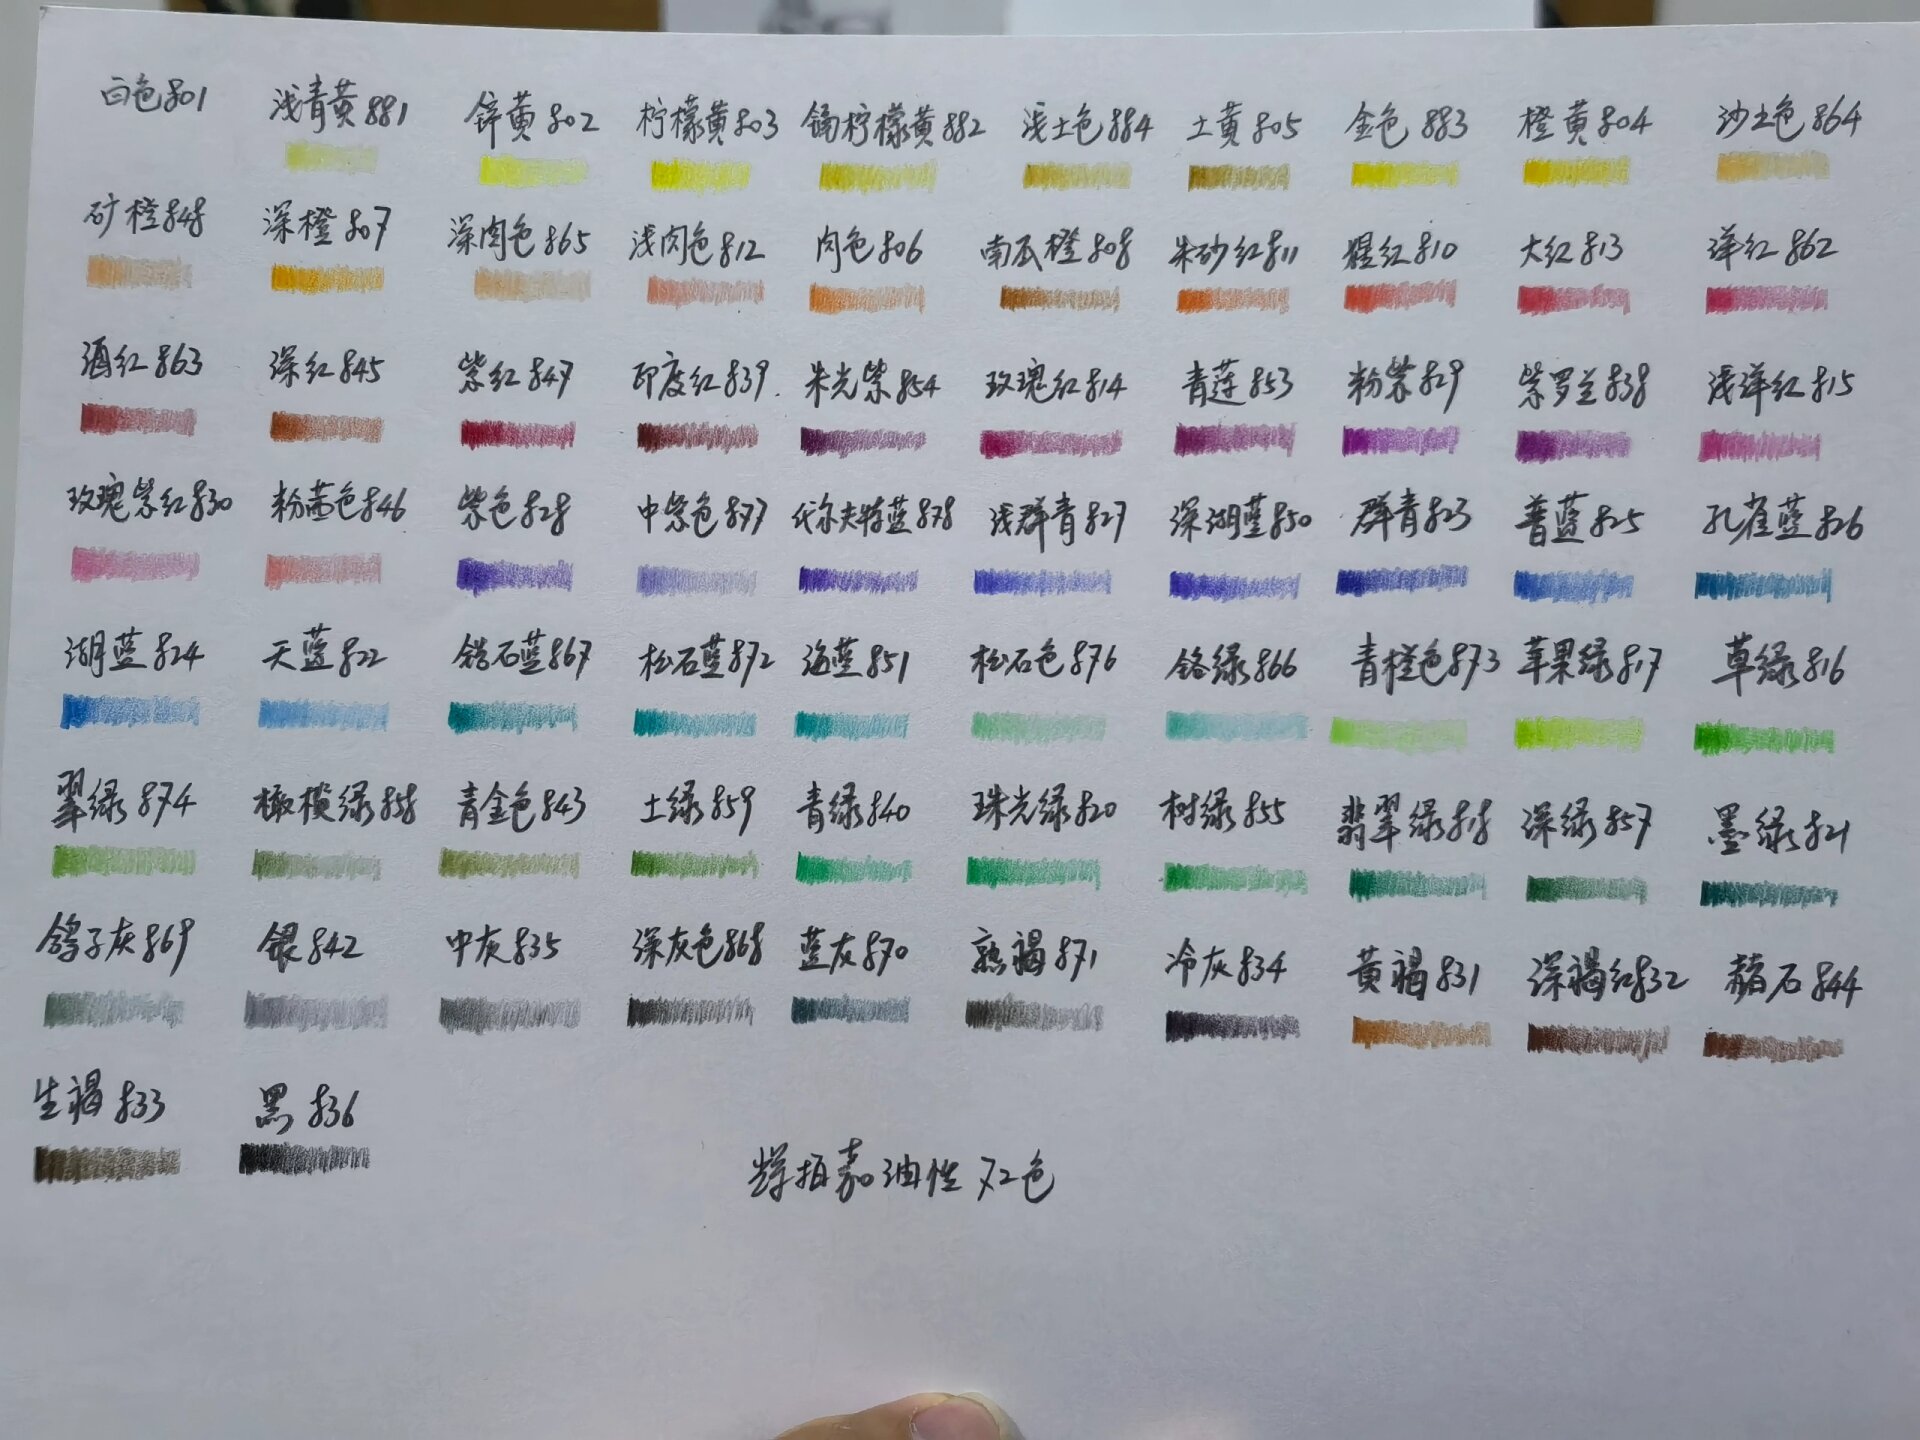 白色801 浅青黄881 锌黄802 柠檬黄803 镉柠檬黄882 浅土色884 土黄805 金色883 橙黄804 沙土色864
矿橙848 深橙807 深肉色865 浅肉色812 肉色806 南瓜橙808 朱砂红811 猩红810 大红813 洋红862
酒红863 深红845 紫红847 印度红839 朱光紫854 玫瑰红814 青莲853 粉紫829 紫罗兰838 浅洋红815
玫瑰紫红830 粉茜色846 紫色828 中紫色877 代尔夫特蓝878 浅群青827 深湖蓝850 群青823 普蓝825 孔雀蓝826
湖蓝824 天蓝822 锆石蓝867 松石蓝872 海蓝851 松石色876 铬绿866 青橙色873 苹果绿817 草绿816
翠绿874 橄榄绿858 青金色843 土绿859 青绿840 珠光绿820 树绿855 翡翠绿818 深绿857 墨绿821
鸽子灰869 银842 中灰835 深灰色868 蓝灰870 熟褐871 冷灰834 黄褐831 深褐红832 赭石844
生褐833 黑836
辉柏嘉油性72色